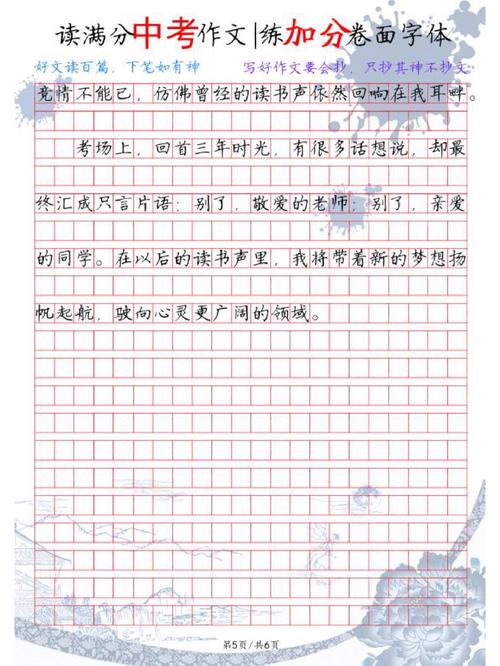 读满分中考作文|练加分卷面字体
好文读百篇，下笔如有神 写好作文要会抄，只抄其神不抄文
竟情不能已，仿佛曾经的读书声依然回响在我耳畔。
考场上，回首三年时光，有很多话想说，却最
终汇成只言片语：别了，敬爱的老师；别了，亲爱
的同学。在以后的读书声里，我将带着新的梦想扬
帆起航，驶向心灵更广阔的领域。
第5页/共6页